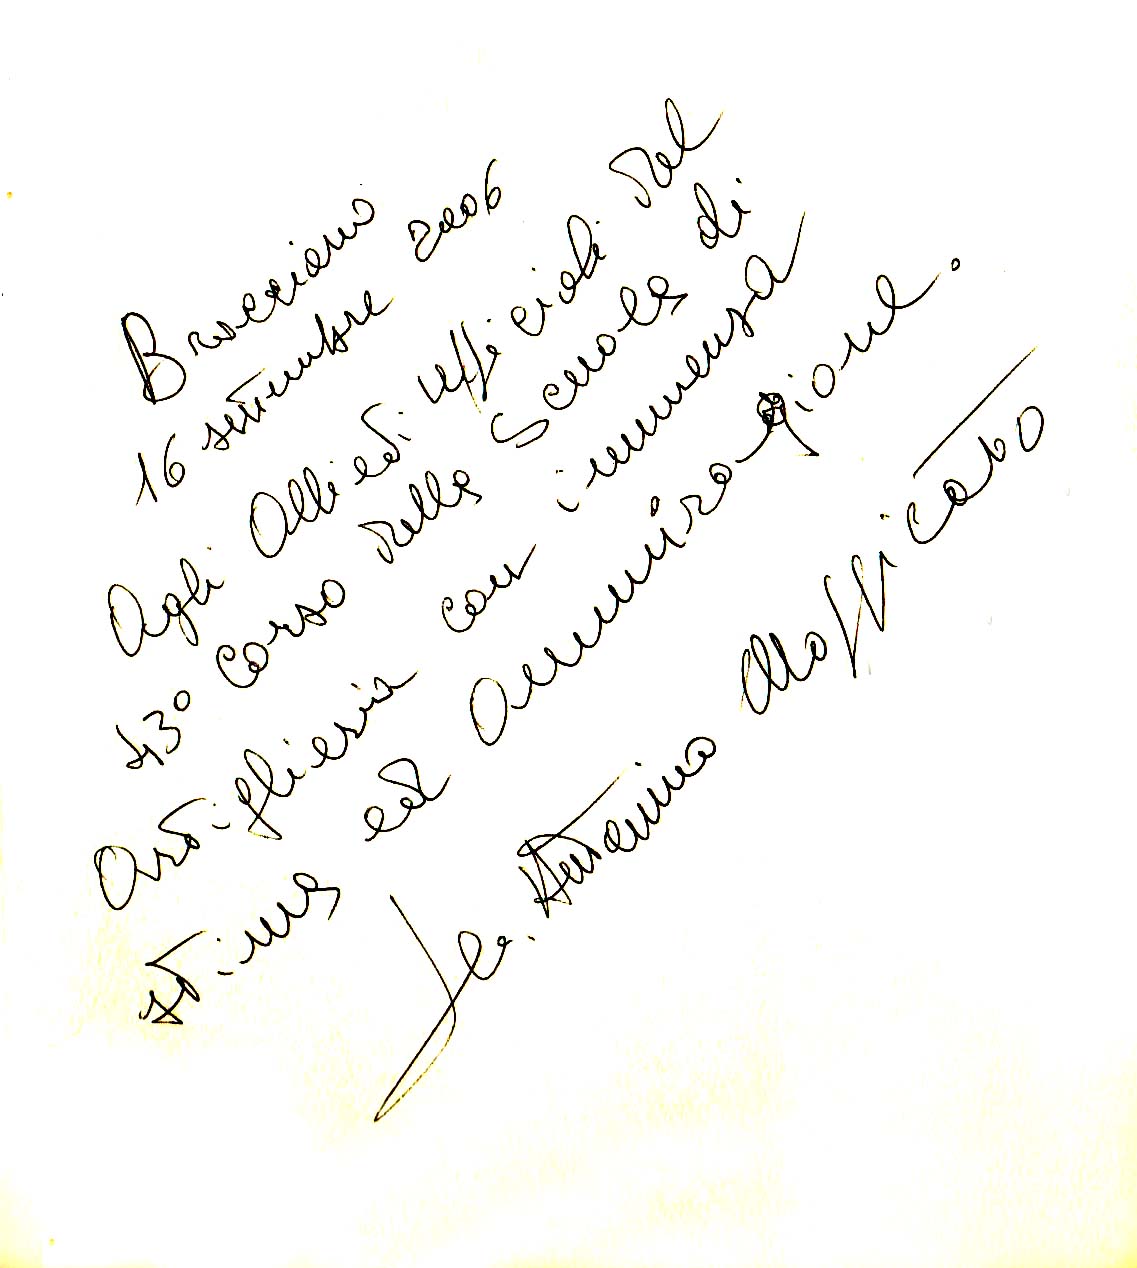 Bracciano
16 settembre 2006
Agli Allievi ufficiali del
43° Corso della Scuola di
Artiglieria con immensa
stima ed ammirazione.
Antonino